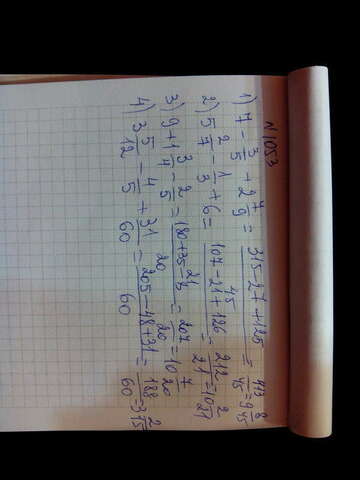 N 1053
1) 7 - 3/5 + 2 7/9 = (315-27+125)/45 = 413/45 = 9 8/45
2) 5 2/7 - 1/3 + 6 = (107-21+126)/21 = 212/21 = 10 2/21
3) 9+1 3/4 - 2/5 = (180+35-8)/20 = 207/20 = 10 7/20
4) 3 5/12 - 4/5 + 31/60 = (205-48+31)/60 = 188/60 = 3 2/15